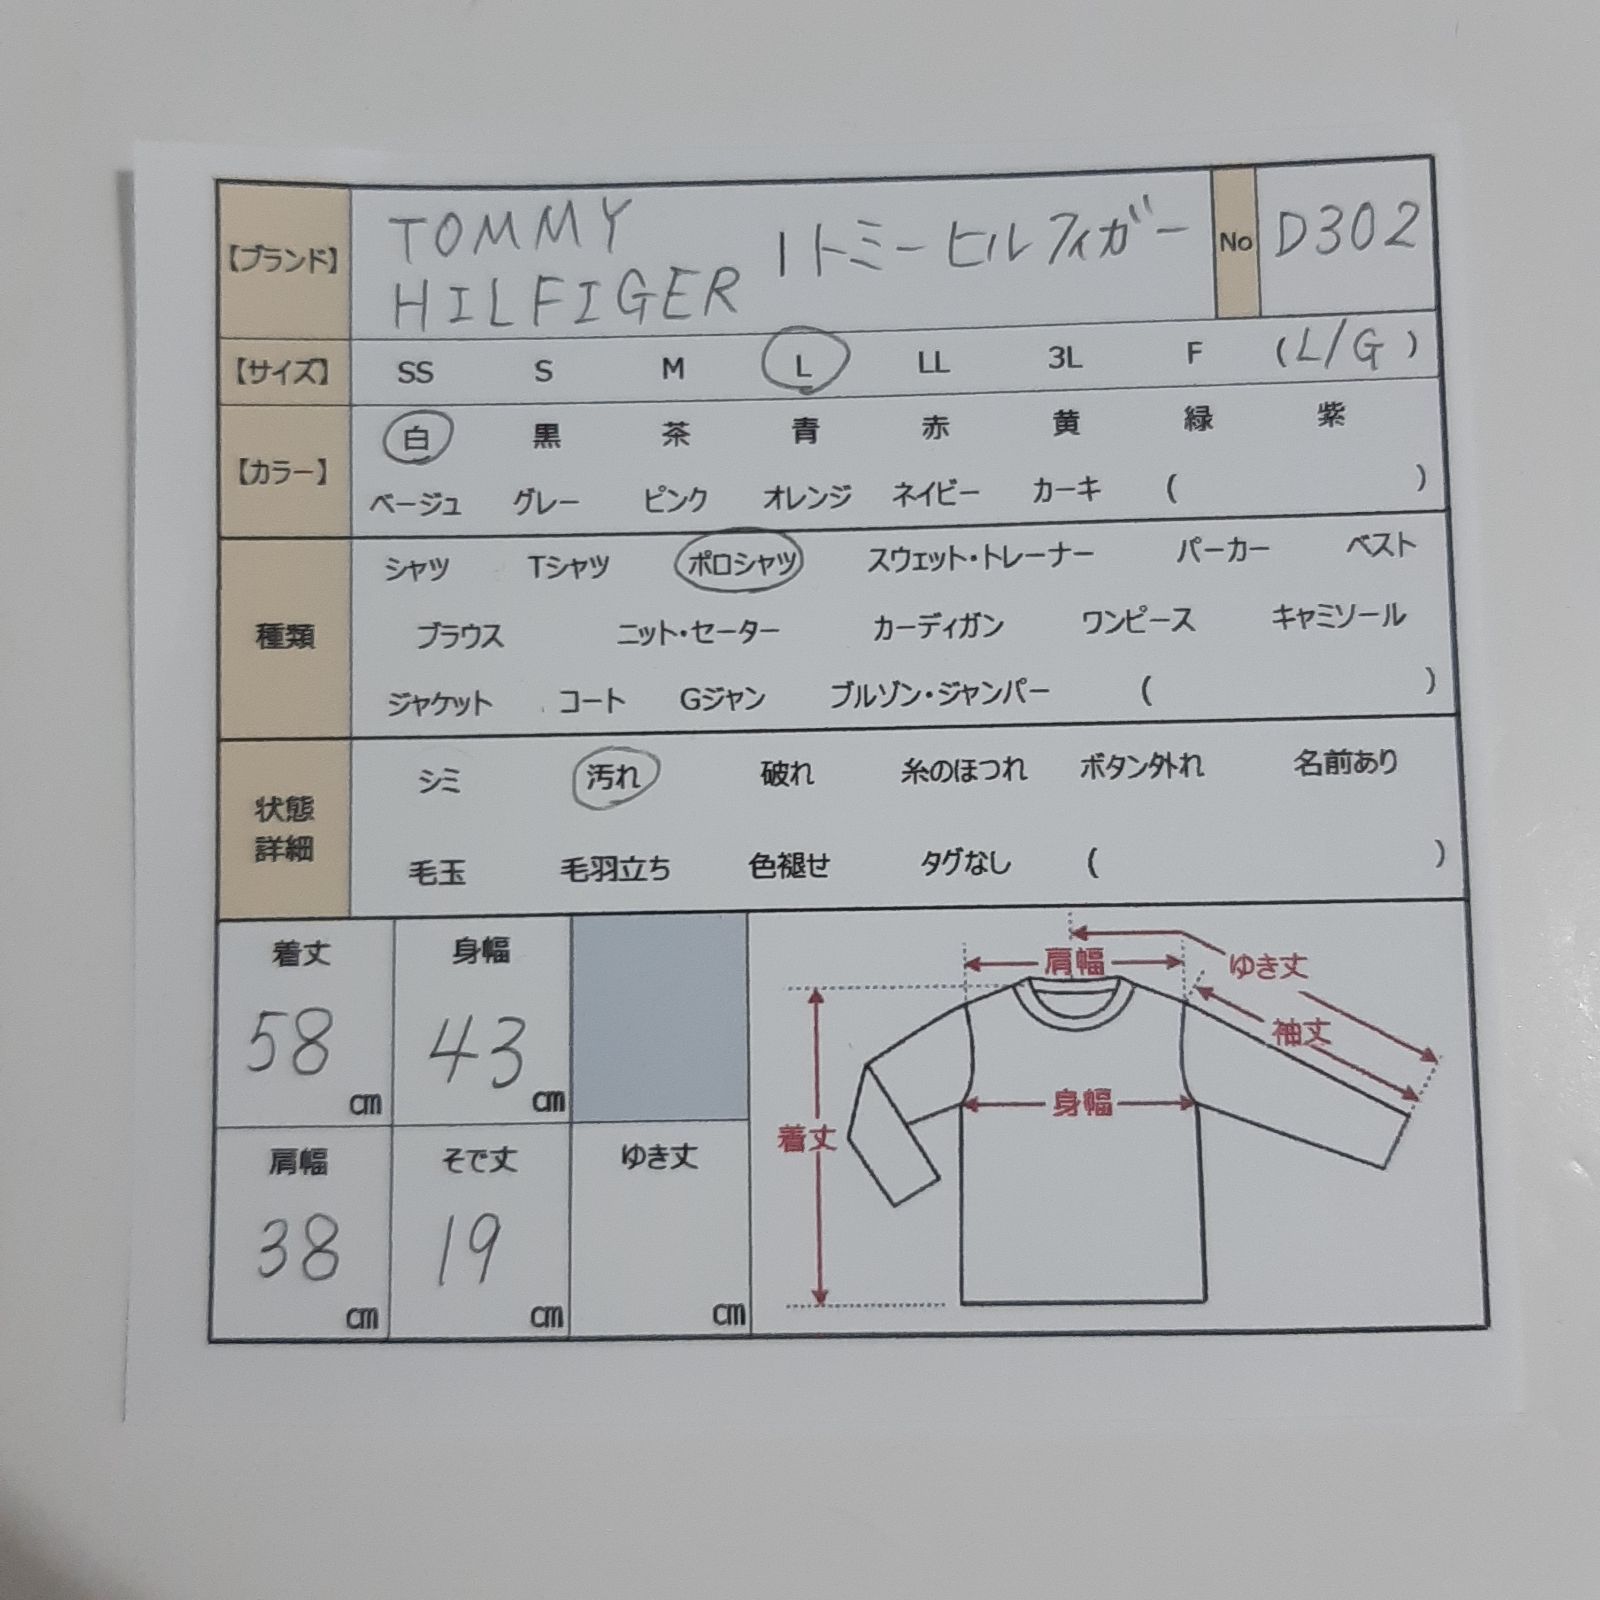 【ブランド】 TOMMY HILFIGER | トミーヒルフィガー No D302
【サイズ】 SS S M L LL 3L F (L/G)
【カラー】 白 黒 茶 青 赤 黄 緑 紫
ベージュ グレー ピンク オレンジ ネイビー カーキ ( )
種類 シャツ Tシャツ ポロシャツ スウェット・トレーナー パーカー ベスト
ブラウス ニット・セーター カーディガン ワンピース キャミソール
ジャケット コート Gジャン ブルゾン・ジャンパー ( )
状態
詳細
シミ 汚れ 破れ 糸のほつれ ボタン外れ 名前あり
毛玉 毛羽立ち 色褪せ タグなし ( )
着丈 身幅
58 cm 43 cm
肩幅 そで丈 ゆき丈
38 cm 19 cm cm
肩幅 ゆき丈
袖丈
身幅
着丈